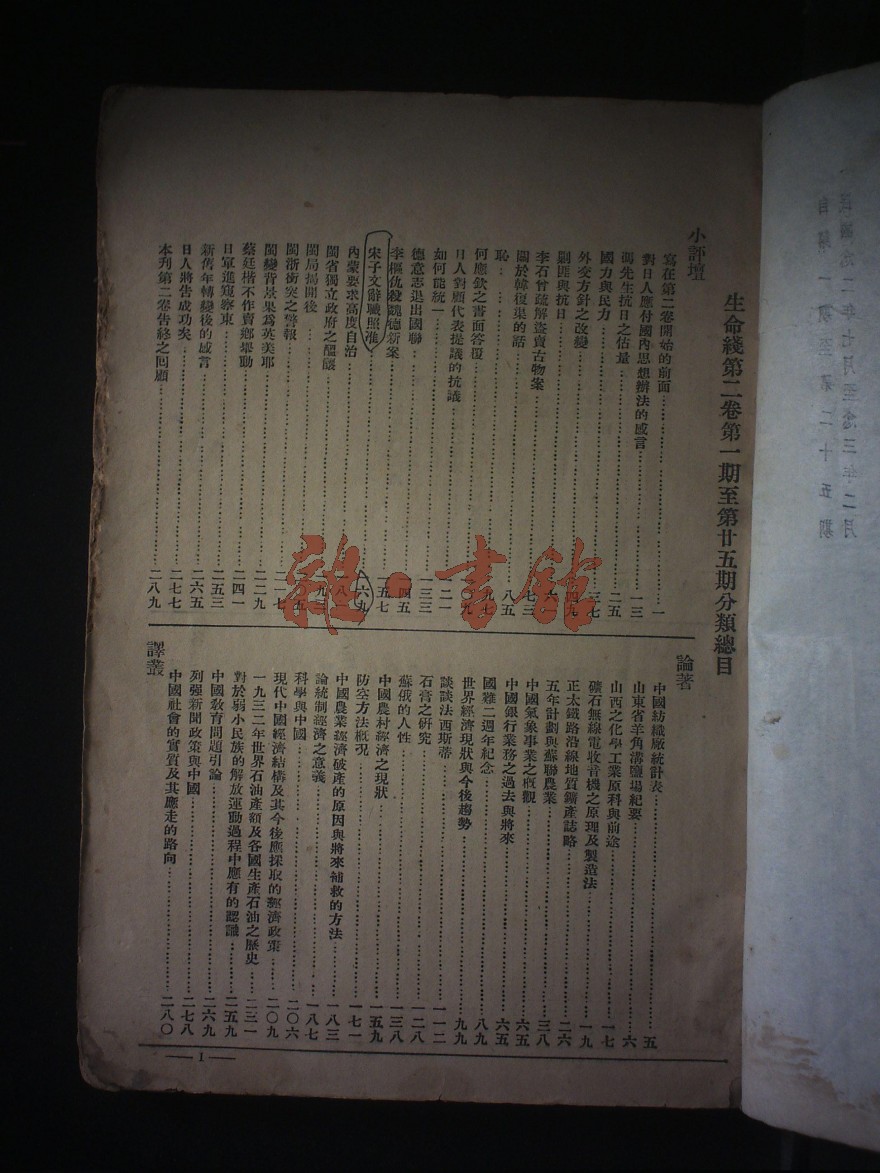 生命綫第二卷第一期至第廿五期分類總目
小評壇
寫在第二卷開始的前面⋯⋯一
對日人應付國內思想辦法的感言⋯⋯一三
先生抗日之估量⋯⋯二五
國力與民力⋯⋯三七
外交方針之改變⋯⋯四九
剿匪與抗日⋯⋯六
李石曾疏解盜賣古物案⋯⋯七三
關於韓復榘的話⋯⋯八五
恥⋯⋯九七
何應欽之書面答覆⋯⋯九
日人對顧代表提議的抗議⋯⋯一二一
如何能統一⋯⋯一三三
德意志退出國聯⋯⋯四五
李樞仇殺魏德新案⋯⋯一五七
宋子文辭職照准⋯⋯一六九
內蒙要求高度自治⋯⋯八
閩省獨立政府之醞釀⋯⋯九
閩局揭開後⋯⋯五
閩浙衝突之警報⋯⋯二一七
閩變背景果為英美耶⋯⋯二二九
蔡廷楷不作賣鄉舉動⋯⋯二四一
日軍進窺察東⋯⋯二五三
新舊年轉變後的感言⋯⋯二六五
日人將告成功矣⋯⋯二七七
本刊第二卷告終之回顧⋯⋯二八九
論著
中國紡織廠統計表⋯⋯五
山東省羊角溝鹽場紀要⋯⋯六
山西之化學工業原料與前途⋯⋯一七
礦石無線電收音機之原理及製造法⋯⋯一九
正太鐵路沿線地質鑛產誌略⋯⋯二六
五年計劃與蘇聯農業⋯⋯三八
中國氣象事業之概觀⋯⋯六五
中國銀行業務之過去與將來⋯⋯六五
國難二週年紀念⋯⋯八九
世界經濟現狀與今後趨勢⋯⋯九九
談談法西斯蒂⋯⋯一一二
石膏之研究⋯⋯一二八
蘇俄的人性⋯⋯一三八
中國農村經濟之現狀⋯⋯一五九
防空方法概況⋯⋯一七一
中國農業經濟破產的原因與將來補救的方法⋯⋯一八三
論統制經濟之意義⋯⋯一八七
科學與中國⋯⋯二〇六
現代中國經濟結構及其今後應採取的經濟政策⋯⋯二〇九
一九三二年世界石油產額及各國生產石油之歷史⋯⋯二三一
對於弱小民族的解放運動過程中應有的認識⋯⋯二五九
中國教育問題引論⋯⋯二六九
列強新聞政策與中國⋯⋯二七八
中國社會的實質及其應走的路向⋯⋯二八〇
譯叢
1